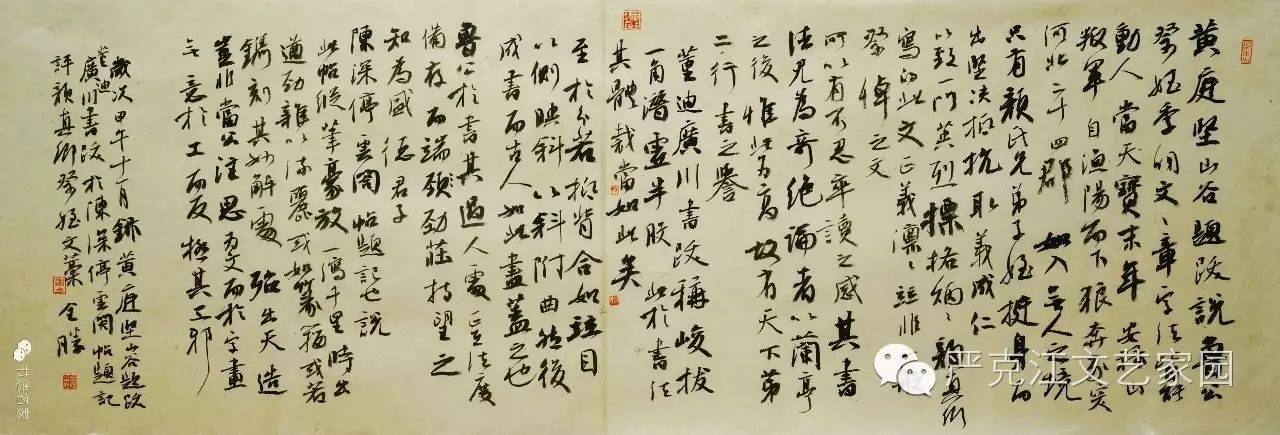 黄庭坚山谷題跋說魯公
祭姪季明文文章字法皆能
動人 當天寶末年 安禄山
叛軍自漁陽而下狼奔豕突
河北二十四郡 如入無人之境
只有顏氏兄弟子姪挺身而
出堅决抵抗取義成仁
以致一門英烈標格炳炳 顏真卿
寫的此文正義凛凛
祭悼之文
所以有不忍卒讀之感其書
法尤為奇絶論者以蘭亭
之後惟此為高 故有天下第
二行書之譽
董迪廣川書跋稱峻拔
一角潛虛半股此於書法
其體裁當如此矣
至於分若抑背合如並目
以側映斜以斜附曲然後
成書而古人如此盡蓋之也
魯公於書其過人處正法度
備存而端頸勁莊持望之
知為盛德君子
陳深停雲閣帖題記也說
此帖縱筆豪放一瀉千里時出
遒勁雜以流麗或如篆籀或若
鐫刻其妙解處 殆出天造
豈非當公注思為文而於字畫
無意於工而反極其工邪
歲次甲午十一月錄黄庭堅山谷題跋
董迪廣川書跋於陳深停雲閣帖題記
評顏真卿祭姪文藁 全勝
书法名家
严克江文艺家园